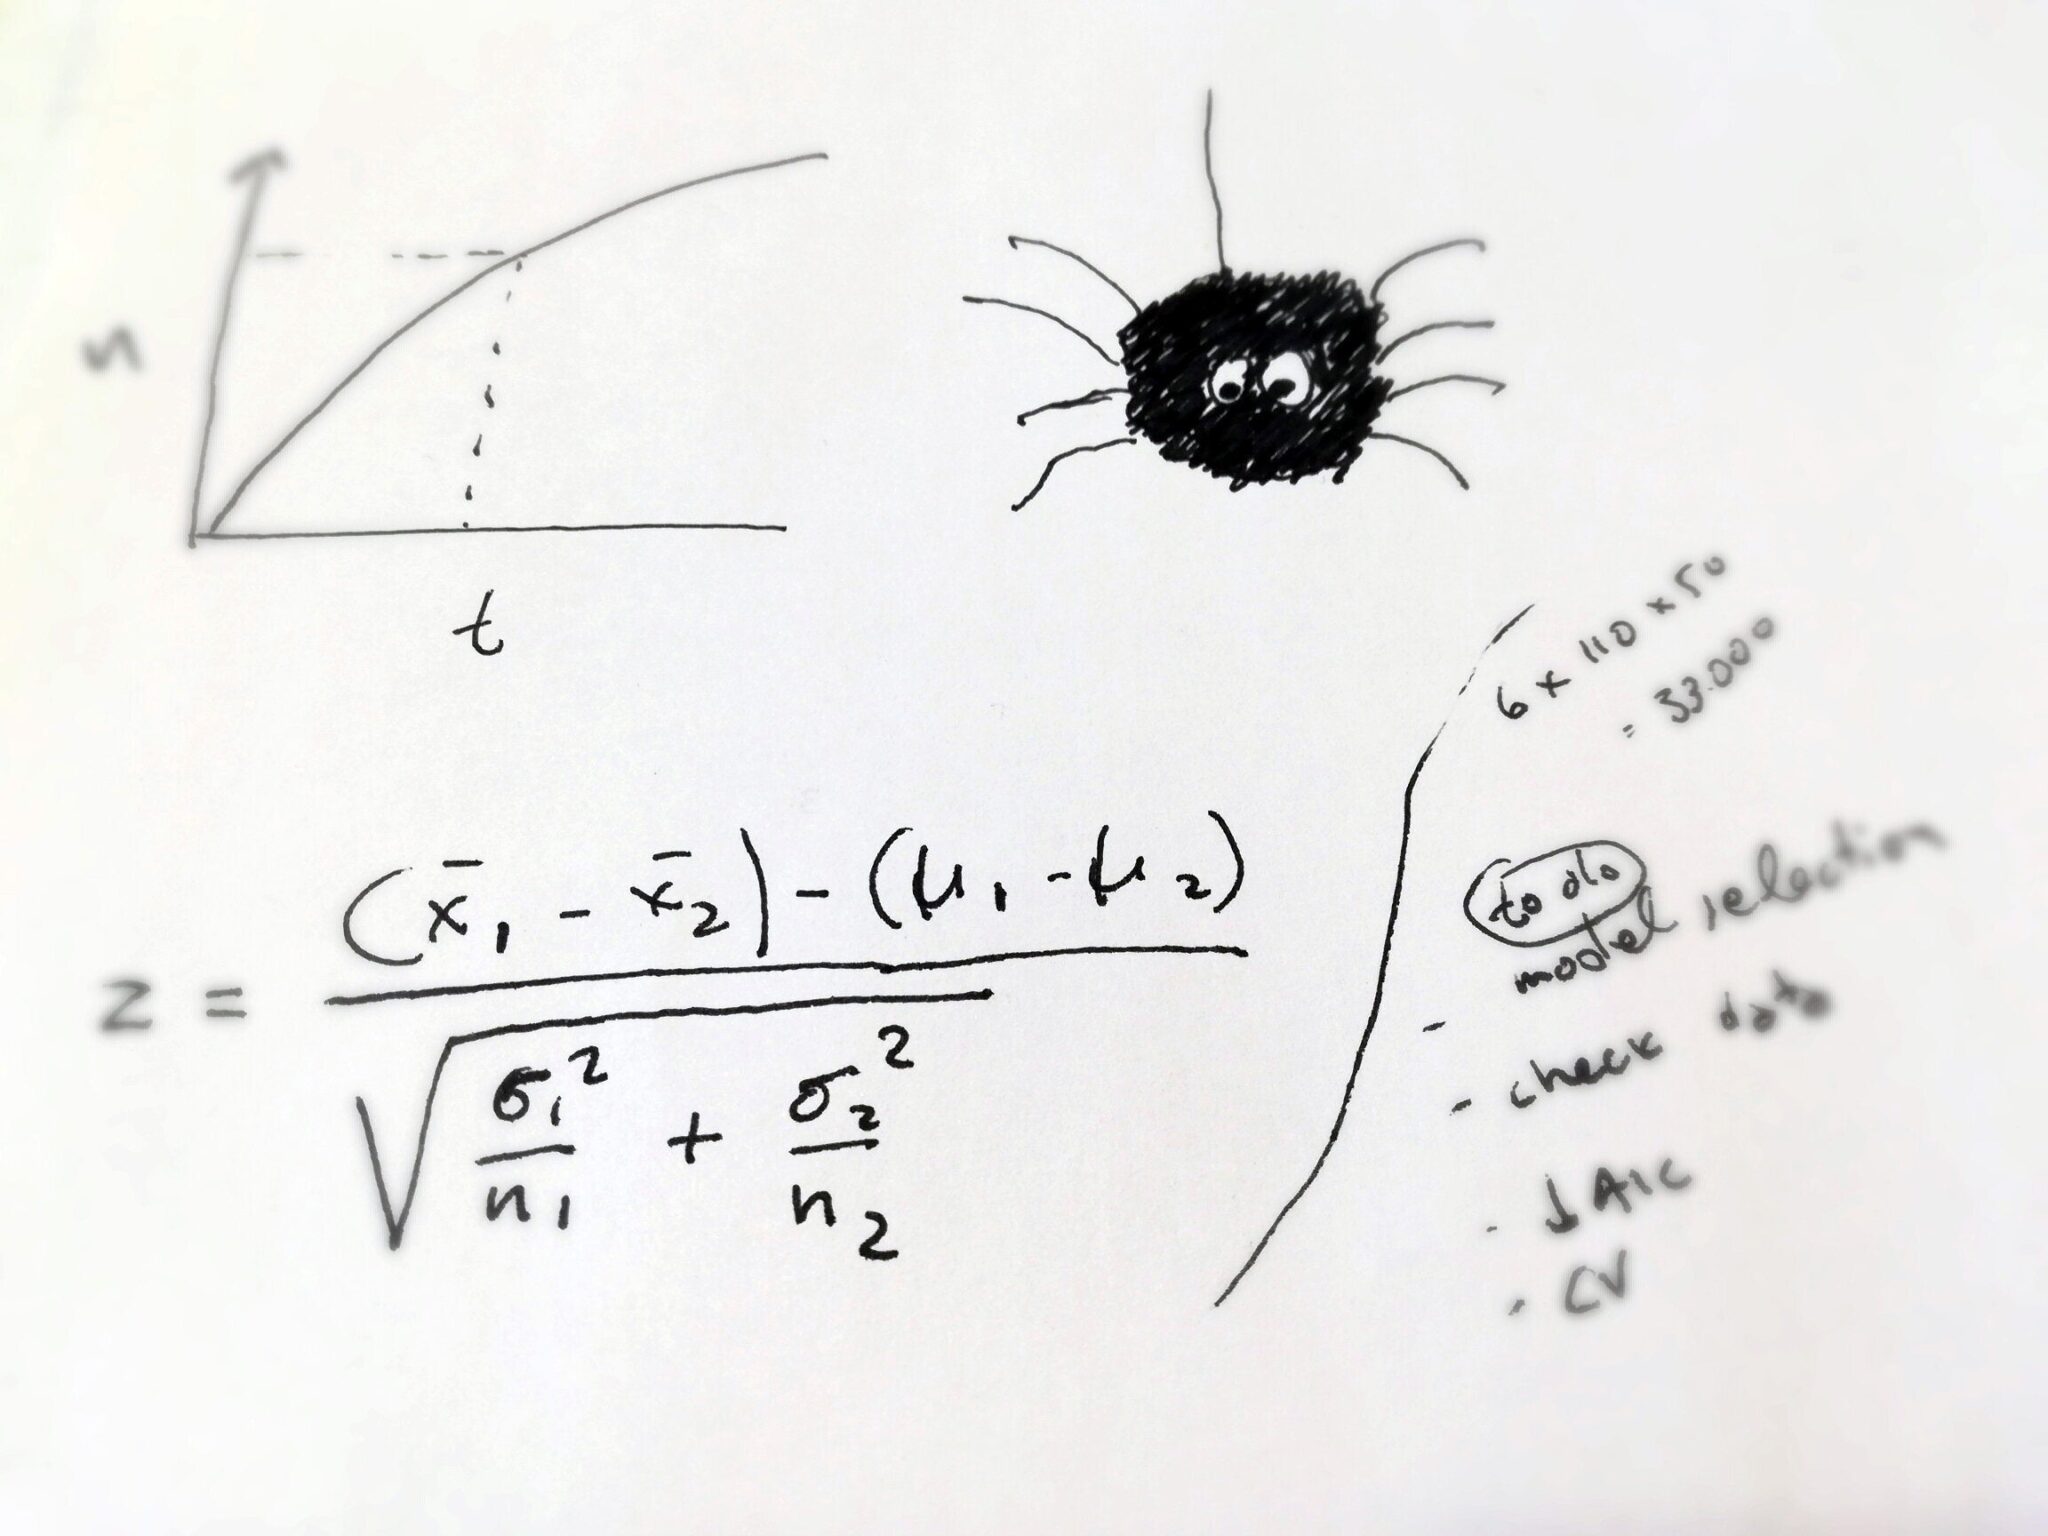 n
t
6 x 110 x 50
= 33.000
z = (x̄₁ - x̄₂) - (μ₁ - μ₂)
√ σ₁² / n₁ + σ₂² / n₂
to do
model selection
-
- check data
- ↓ AIC
- CV